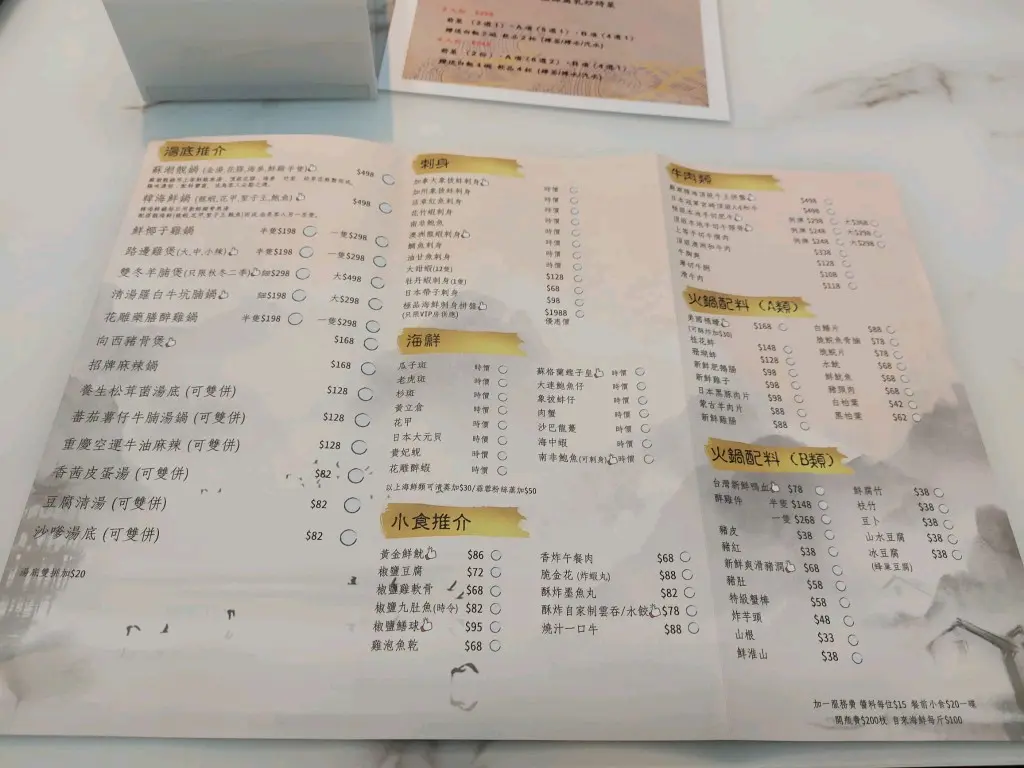 前菜 (3選1)、A項(5選1)、B項(4選1)
前菜 (2份)、A項(6選2)、B項(4選1)
湯底推介
$498
韓海鮮鍋 (龍蝦,花甲,聖子王,鮑魚)
$498
鮮椰子雞鍋 半隻$198 一隻$298
路邊雞煲(大,中,小辣) 半隻$198 一隻$298
雙冬羊腩煲(只限秋冬二季) 細$298 大$498
清湯蘿白牛坑腩鍋 細$198 大$298
花雕藥膳醉雞鍋 半隻$198 一隻$298
向西豬骨煲 $168
招牌麻辣鍋 $168
養生松茸菌湯底 (可雙併) $128
蕃茄薯仔牛腩湯鍋 (可雙併) $128
重慶空運牛油麻辣 (可雙併) $128
香茜皮蛋湯 (可雙併) $82
豆腐清湯 (可雙併) $82
沙嗲湯底 (可雙併) $82
湯底雙拼加$20
刺身
加拿大象拔蚌刺身 時價
加州象拔蚌刺身 時價
法章紅魚刺身 時價
花竹蝦刺身 時價
南非鮑魚 時價
澳洲龍蝦刺身 時價
鯛魚刺身 時價
油甘魚刺身 時價
大甜蝦(12隻) $128
牡丹蝦刺身(1隻) $68
日本帶子刺身 $98
極品海鮮刺身拼盤 $1988
(只限VIP房供應) 優惠價
海鮮
瓜子斑 時價
老虎斑 時價
杉斑 時價
黃立倉 時價
花甲 時價
日本大元貝 時價
貴妃蜆 時價
花雕醉蝦 時價
蘇格蘭蟶子皇 時價
大連鮑魚仔 時價
象拔蚌仔 時價
肉蟹 時價
沙巴龍躉 時價
海中蝦 時價
南非鮑魚(可刺身) 時價
以上海鮮類可清蒸加$30/蒜蓉粉絲蒸加$50
小食推介
黃金鮮魷 $86
椒鹽豆腐 $72
椒鹽雞軟骨 $68
椒鹽九肚魚(時令) $82
椒鹽鱔球 $95
雞泡魚乾 $68
香炸午餐肉 $68
脆金花 (炸蝦丸) $88
酥炸墨魚丸 $82
酥炸自家制雲吞/水餃 $78
燒汁一口牛 $88
牛肉類
$498
$498
例牌 $298 大$568
例牌 $248 大$298
例牌 $248 大$298
$338
牛胸爽 $128
$108
滑牛肉 $118
火鍋配料 (A類)
美國桶蠔 $168
(可酥炸加$30)
桂花蚌 $148
珊瑚蚌 $128
新鮮肥鵝腸 $98
新鮮雞子 $98
日本黑豚肉片 $98
蒙古羊肉片 $88
新鮮雞腸 $88
白鱔片 $88
脆鯇魚骨腩 $78
脆鯇片 $78
水魷 $68
鮮魷魚 $68
豬頸肉 $68
白柏葉 $42
黑柏葉 $62
火鍋配料 (B類)
台灣新鮮鴨血 $78
醉雞件 半隻$148
一隻$268
豬皮 $38
豬紅 $38
新鮮爽滑豬潤 $68
豬肚 $58
特級蟹棒 $58
炸芋頭 $48
山根 $33
鮮淮山 $38
鮮腐竹 $38
枝竹 $38
豆卜 $38
山水豆腐 $38
冰豆腐 $38
(蜂巢豆腐)
加一服務費 醬料每位$15 餐前小食$20一碟
開瓶費$200枝 自來海鮮每斤$100